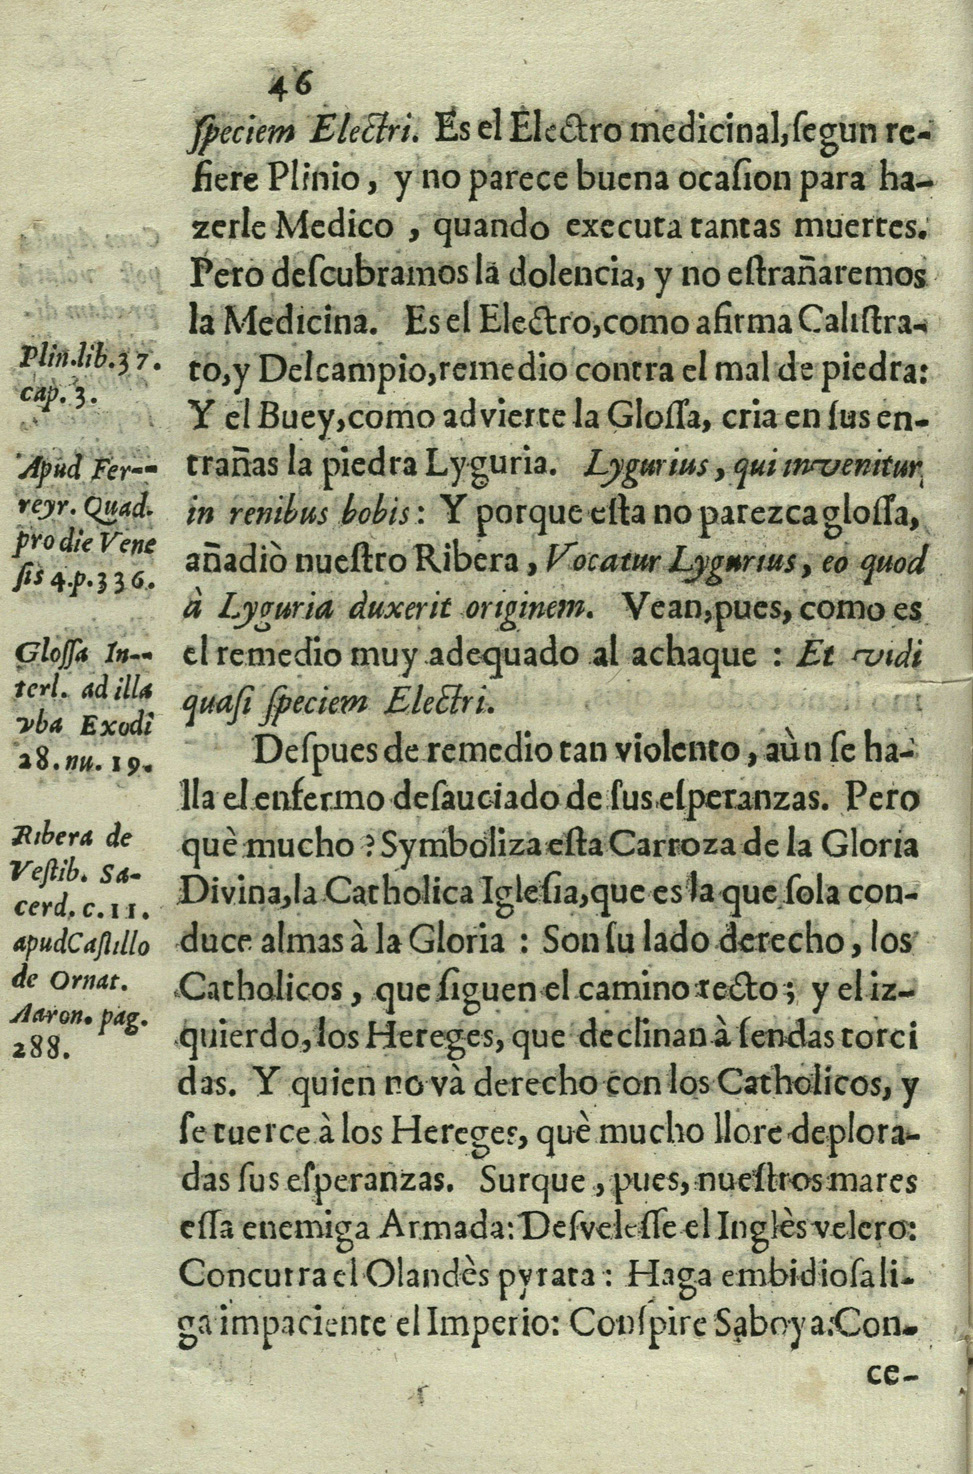 46
ſpeciem Electri. Es el Electro medicinal, ſegun re-
fiere Plinio, y no parece buena ocaſion para ha-
zerle Medico, quando executa tantas muertes.
Pero deſcubramos la dolencia, y no eſtrañaremos
la Medicina. Es el Electro, como afirma Caliſtra-
to, y Delcampio, remedio contra el mal de piedra:
Y el Buey, como advierte la Gloſſa, cria en ſus en-
trañas la piedra Lyguria. Lygurius, qui invenitur
in renibus bobis: Y porque eſta no parezca gloſſa,
añadiò nueſtro Ribera, Vocatur Lygurius, eo quod
à Lyguria duxerit originem. Vean, pues, como es
el remedio muy adequado al achaque: Et vidi
quaſi ſpeciem Electri.
Deſpues de remedio tan violento, aùn ſe ha-
lla el enfermo deſauciado de ſus eſperanzas. Pero
què mucho? Symboliza eſta Carroza de la Gloria
Divina, la Catholica Igleſia, que es la que ſola con-
duce almas à la Gloria: Son ſu lado derecho, los
Catholicos, que ſiguen el camino recto; y el iz-
quierdo, los Hereges, que declinan à ſendas torci
das. Y quien no và derecho con los Catholicos, y
ſe tuerce à los Hereges, què mucho llore deplora-
das ſus eſperanzas. Surque, pues, nueſtros mares
eſſa enemiga Armada: Deſveleſſe el Inglès velero:
Concurra el Olandès pyrata: Haga embidioſa li-
ga impaciente el Imperio: Conſpire Saboya: Con-
ce-
Plin. lib. 37.
cap. 3.
Apud Fer--
reyr. Quad.
pro die Vene
ſis 4. p. 336.
Gloſſa In--
terl. ad illa
vba Exodi
28. nu. 19.
Ribera de
Veſtib. Sa-
cerd. c. 11.
apud Caſtillo
de Ornat.
Aaron. pag.
288.